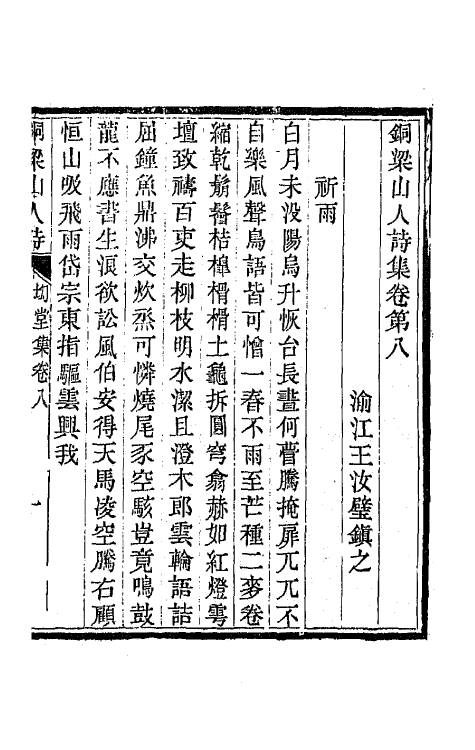 銅梁山人詩集卷第八
渝江王汝璧鎮之
祈雨
白月未没陽烏升恢台長晝何瞢騰掩扉兀兀不
自樂風聲鳥語皆可憎一春不雨至芒種二麥卷
縮乾鬅鬙桔橰榾榾土龜拆圓穹翕赫如紅燈雩
壇致禱百吏走柳枝明水潔且澄木郎雲輪語詰
屈鐘魚鼎沸交炊烝可憐燒尾豕空駭豈竟鳴鼓
龍不應書生浪欲訟風伯安得天馬凌空騰右顧
恒山吸飛雨岱宗東指驅雲興我
銅梁山人詩
坳堂集卷八
一